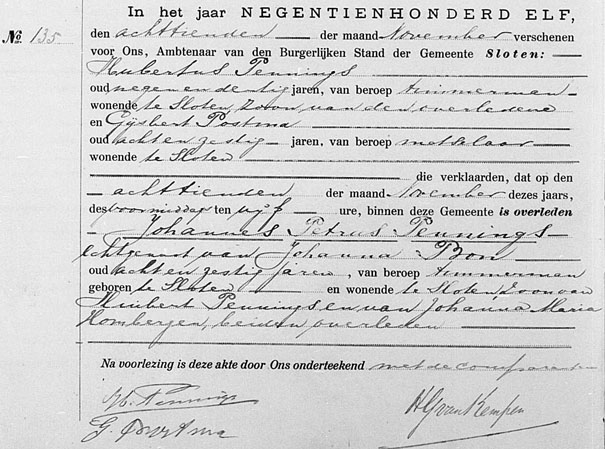 In het jaar NEGENTIENHONDERD ELF,
No. 135 den achttienden der maand November verschenen
voor Ons, Ambtenaar van den Burgerlijken Stand der Gemeente Sloten:
Hubertus Pennings
oud negen en dertig jaren, van beroep timmerman
wonende te Sloten, zoon van den overledene
en Gijsbert Postma
oud acht en zestig jaren, van beroep metselaar
wonende te Sloten
die verklaarden, dat op den
achttienden der maand November dezes jaars,
des voormiddags ten vijf ure, binnen deze Gemeente is overleden
Johannes Petrus Pennings
echtgenoot van Johanna Bon
oud acht en zestig jaren, van beroep timmerman
geboren te Sloten en wonende te Sloten, zoon van
Huibert Pennings en van Johanna Maria
Hombergen, beiden overleden
Na voorlezing is deze akte door Ons onderteekend met de comparanten
H. Pennings
G. Postma
HG van Kempen